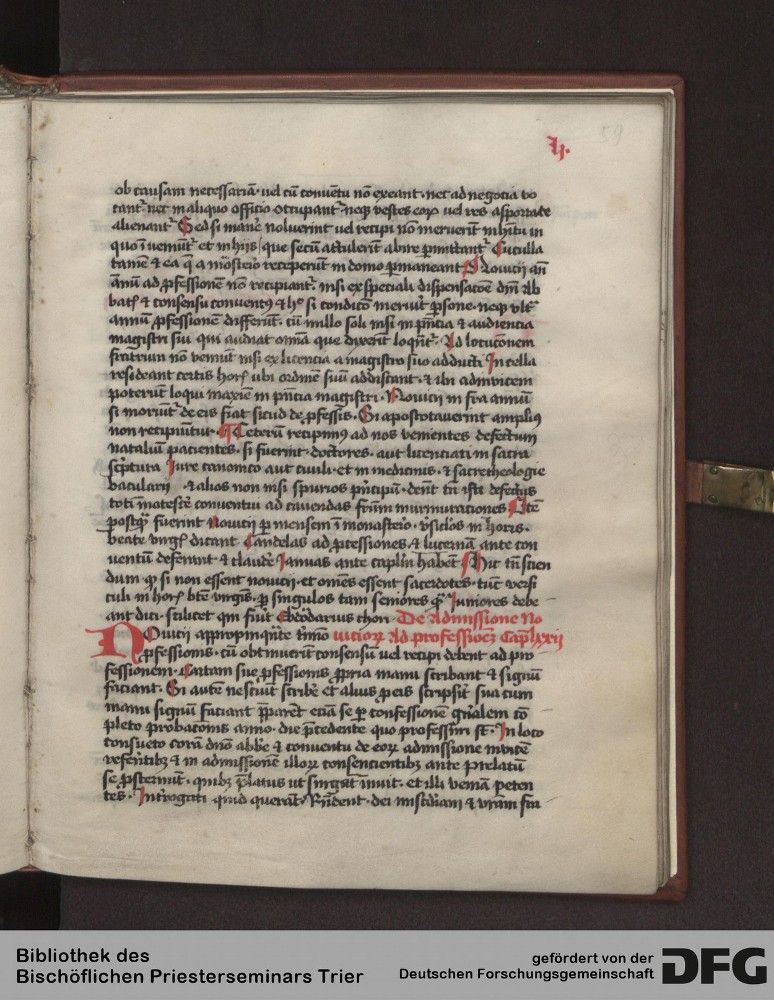 59
ob causam necessariā· uel cū conuētu nō exeant· nec ad negocia vo
cant᷑· nec in aliquo officio occupant᷑· neqꝫ vestes eoꝝ uel res asportate
alienant᷑ Sed si mane noluerint uel recipi nō meruerīt in hītu in
quo īueniūt᷑ et in hijs que secū attulerūt abire ꝑmittant᷑ Cuculla
tamē & ea q̄ a mōsterio receperūt in domo ꝑmaneant Nouicij añ
annū ad ꝓfessionē nō recipiant᷑· nisi ex speciali dispensacōe dñi Ab
batꝭ & consensu conuentꝰ & hᵒ si condicō meruit ꝑsone· neqꝫ vlt᷑
annū ꝓfessionē differūt· cū nullo soli nisi in p̄ncia & audiencia
magistri sui qui audiat om̄ia que dixerit loqūt᷑· Ad locucōnem
fratrum nō veniūt nisi ex licencia a magistro suo adducti In cella
resideant certis horꝭ ubi ordinē suū addiscant· & ibi adinuicem
poterūt loqui maxīe in p̄ncia magistri· Nouicij in fra annū
si moriūt᷑ de eis fiat sicud de ꝓfessis· Si apostotauerint ampliꝰ
non recipiūtur· Ceterū recipimꝰ ad nos venientes defectum
nataliū pacientes· si fuerint· doctores· aut licenciati in sacra
scͥptura Iure canonico aut ciuili· et in medicinis· & sacre theologie
bacularij · & alios non nisi spurios pͥncipū· dēnt tñ isti defectꝰ
toti īnotescē conuentui ad cauendas fr̄um murmuraciones Itē
postqᷓ fuerint Nouicij ꝑ mensem ī monasterio· vsiclos in horis·
beate virgī dicant Candelas ad ꝓcessiones & lucernā ante con
uentū deferant & claudē Ianuas ante capl̄m habēt Hic tñ scien
dum ꝙ si non essent nouicij· et om̄es essent sacerdotes· tūc versi
culi in horꝭ btē virgīs· ꝑ singulos tam seniores qᷓ Iuniores debē
ant dici· scilicet qui fiūt Ebdōdarius chori· De Admissione No
Nouicij appropinquāte tm̄īo uicioꝝ Ad professioēꝫ Cap̄ lxxij
ꝓfessionis· cū obtinuerīt consensū uel recipi debent ad pro
fessionem· Cartam sue ꝓfessionis ꝓpria manu scribant & signū
faciant· Si autē nesciūt scribē et alius ꝓ eis scripsit sua cum
manu signū faciant p̄parēt eciā se ꝑ confessionē gn̄alem cō
pleto probacionis anno· die p̄cedente quo professuri st̄· In loco
consueto corā dn̄o abbē & conuentu de eoꝝ admissione inuicē
referētibꝫ & in admissionē illoꝝ consencientibꝫ ante prelatū
se ꝓsternunt· quibꝫ p̄latus ut surgāt innuit· et illi veniā peten
tes· Interogati quid querāt· Rn̄dent· dei misc̄diam & vr̄am fra
Bibliothek des
Bischöflichen Priesterseminars Trier
gefördert von der
Deutschen Forschungsgemeinschaft DFG